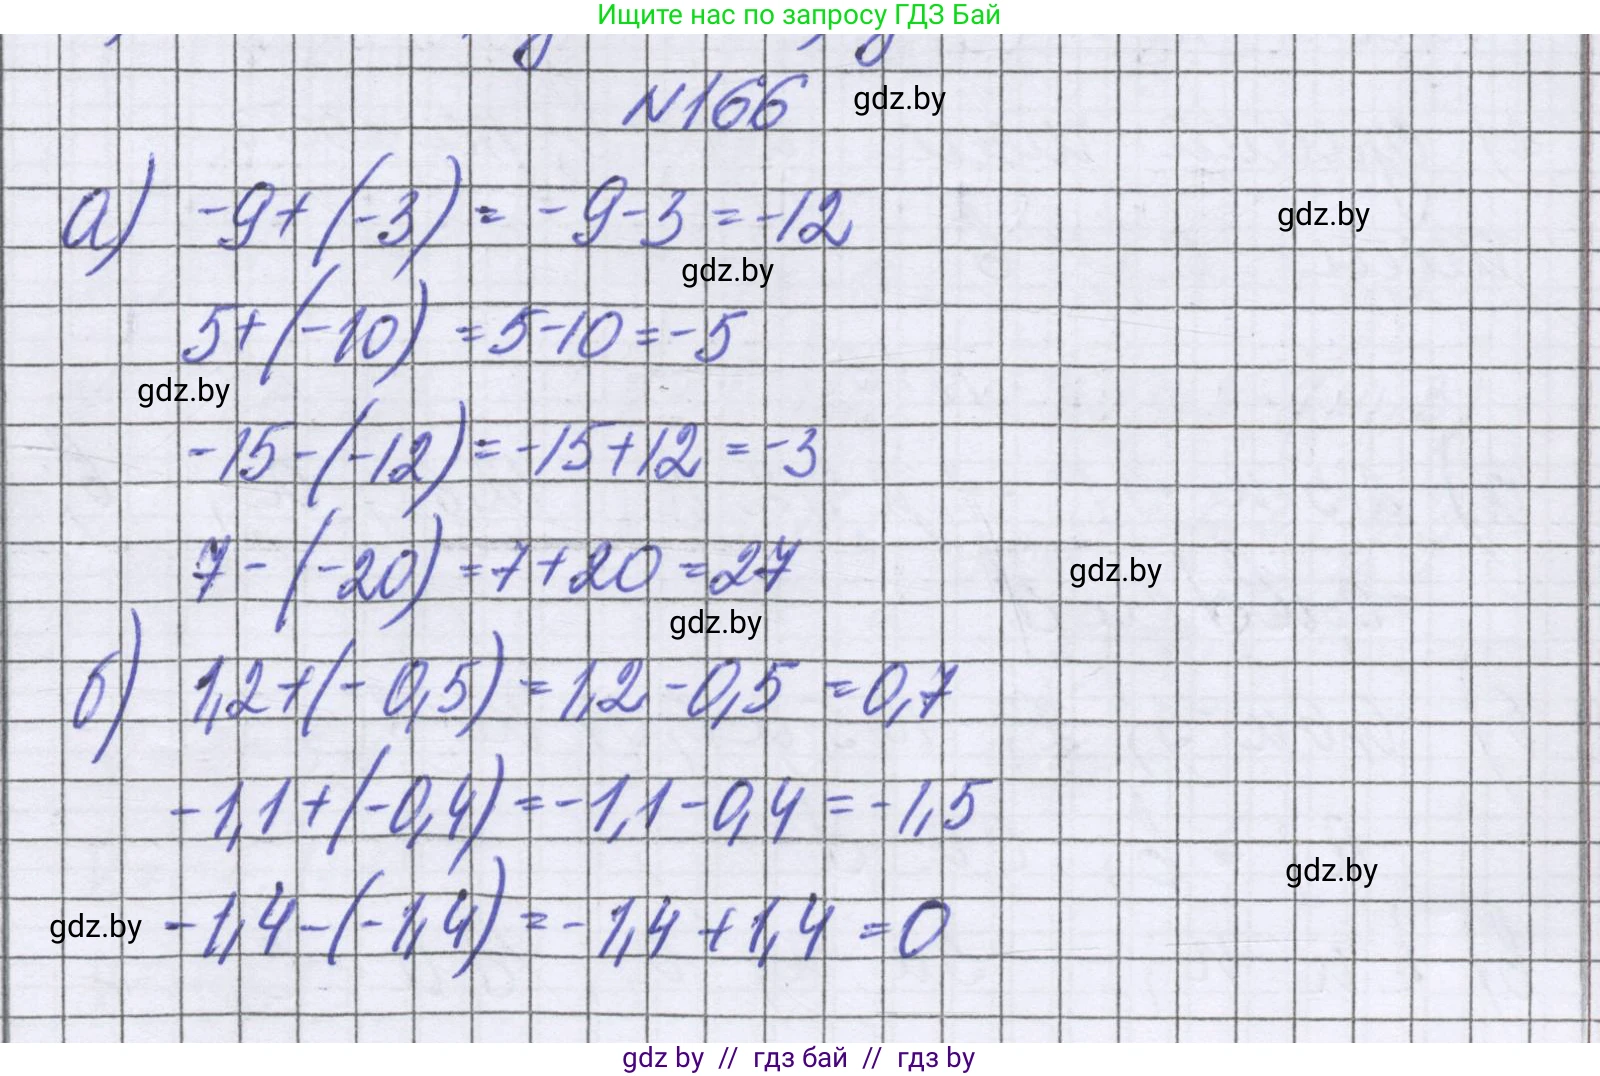 Ищите нас по запросу ГДЗ Бай
№166
gdz.by
а) -9+(-3) = -9-3 = -12
gdz.by
gdz.by
5+(-10) = 5-10 = -5
gdz.by
-15-(-12) = -15+12 = -3
7-(-20) = 7+20 = 27
gdz.by
gdz.by
б) 1,2+(-0,5) = 1,2-0,5 = 0,7
-1,1+(-0,4) = -1,1-0,4 = -1,5
gdz.by
gdz.by
-1,4-(-1,4) = -1,4+1,4 = 0
gdz by // гдз бай // гдз by